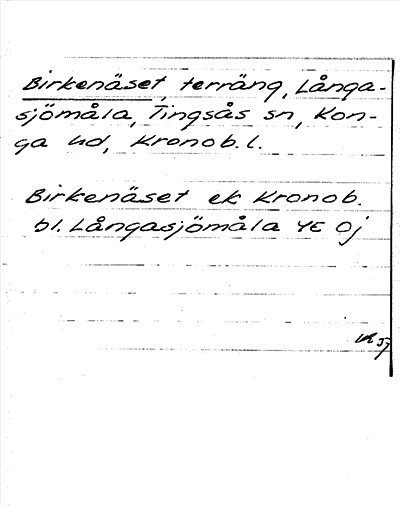 Birkenäset, terräng, Långa-
sjömåla, Tingsås sn, Kon-
ga hd, Kronob. l.
Birkenäset ek Kronob.
bl. Långasjömåla 4E Oj